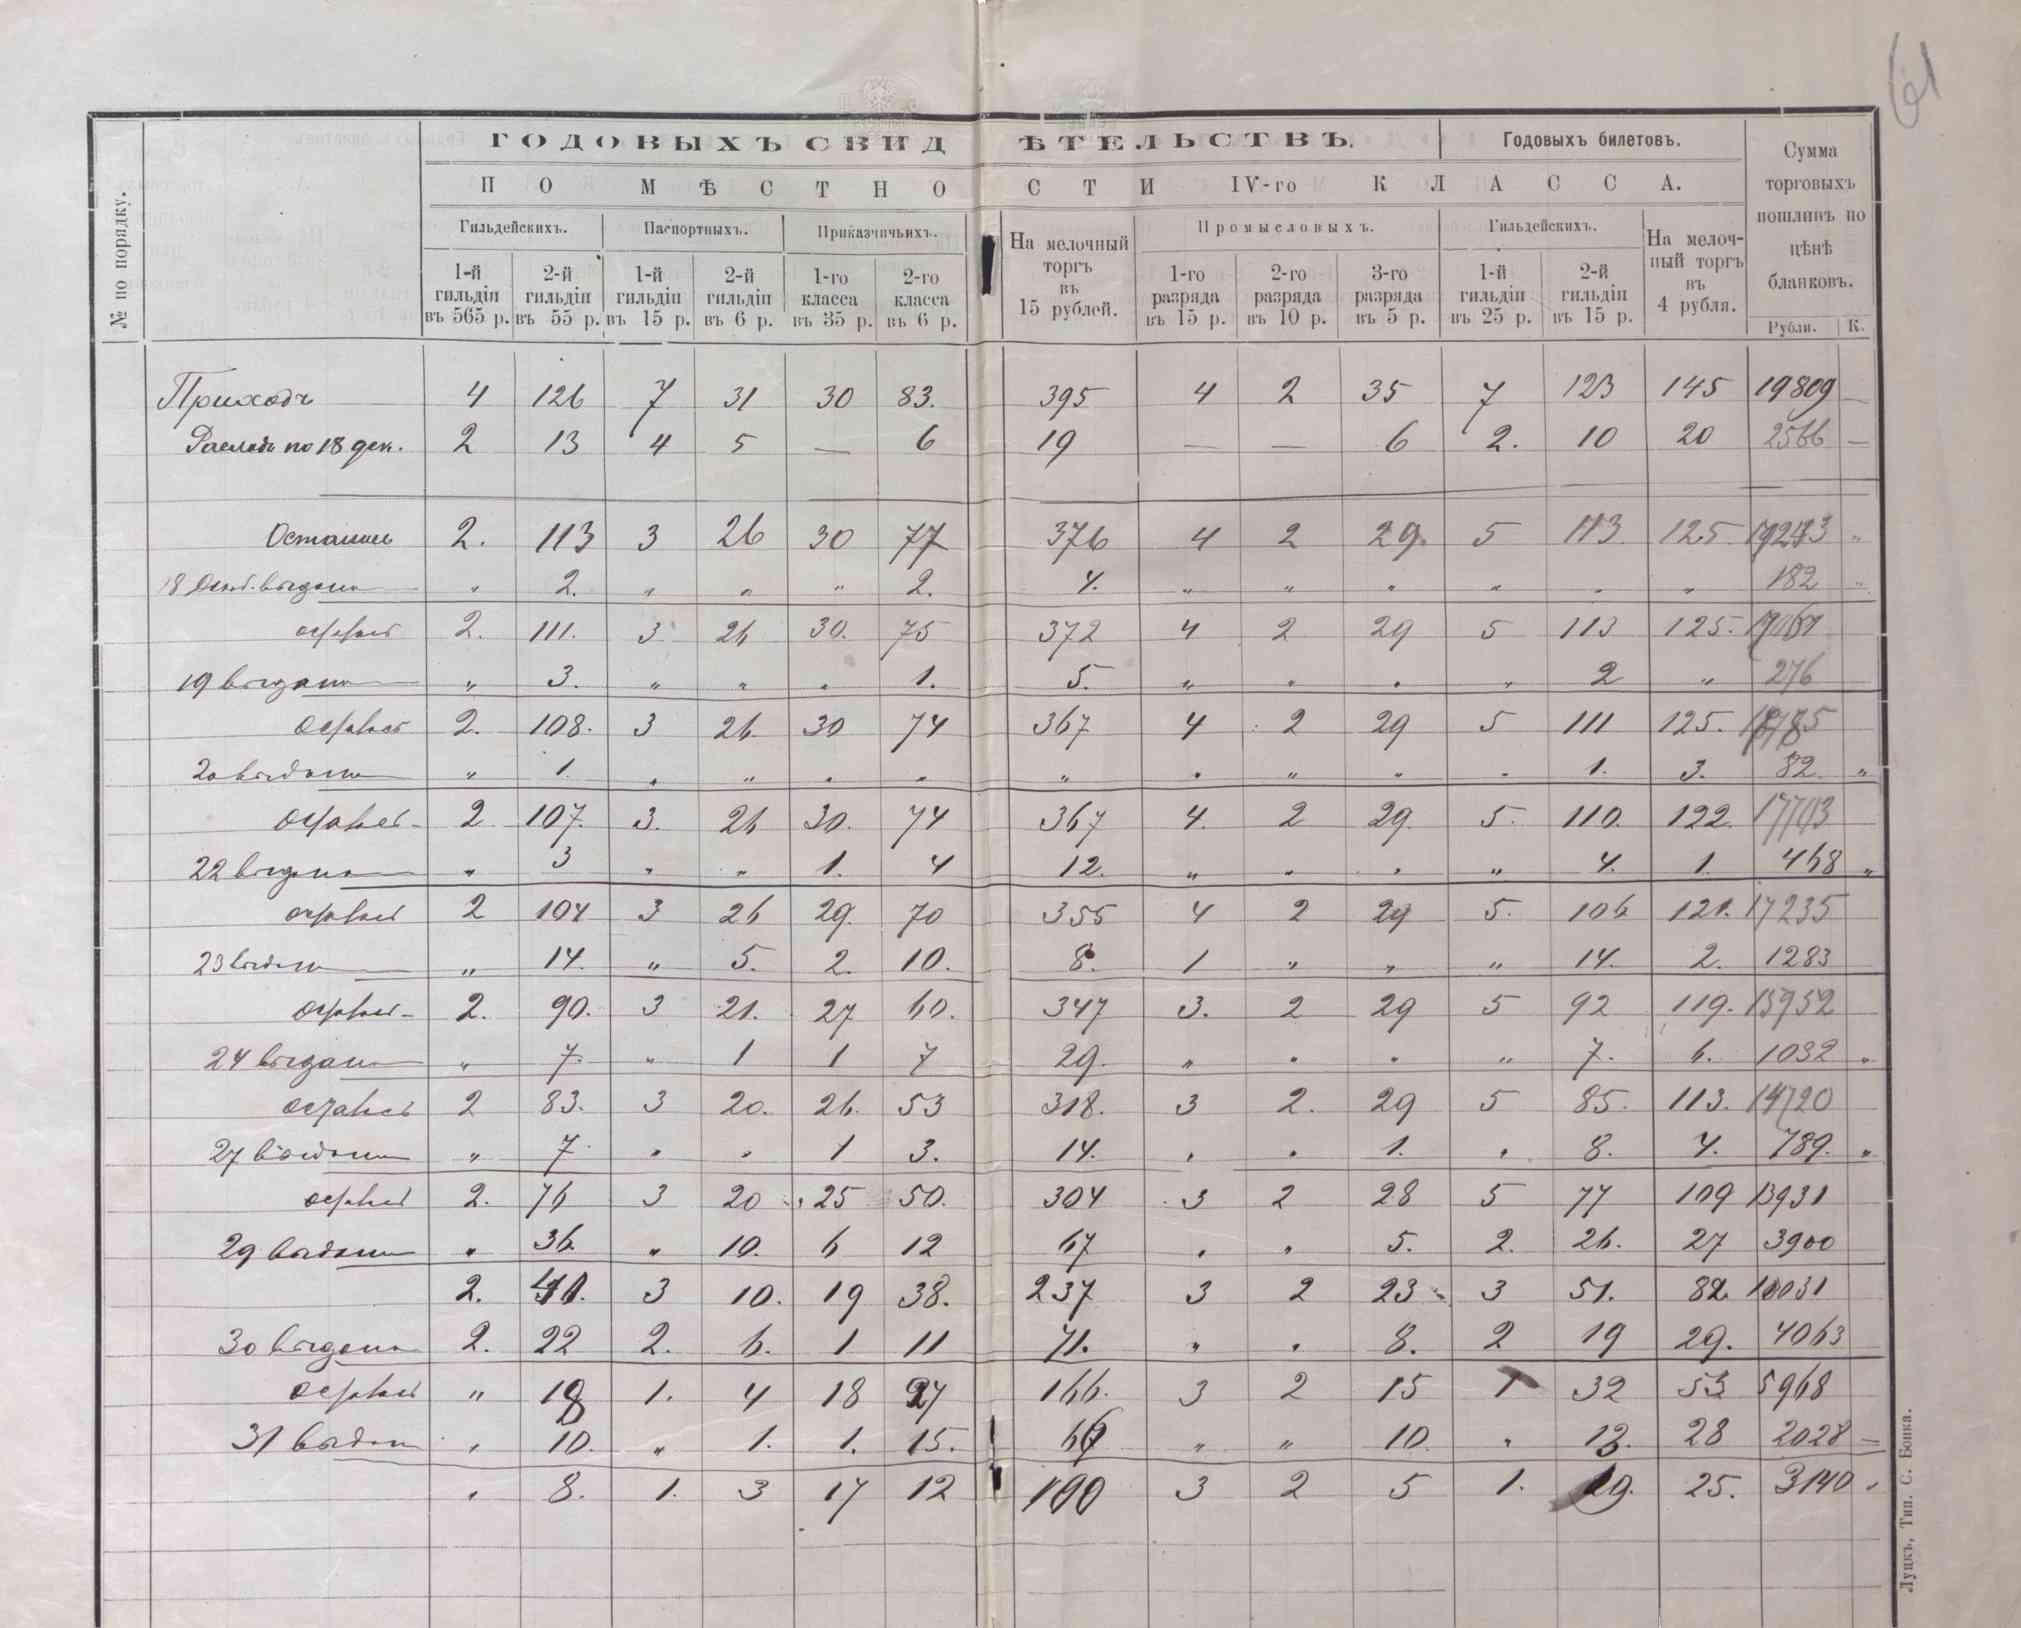 61
ГОДОВЫХЪ СВИДѢТЕЛЬСТВЪ. Годовыхъ билетовъ.
ПО МѢСТНОСТИ IV-го КЛАССА.
№ по порядку.
Гильдейскихъ. Паспортныхъ. Приказчичьихъ. На мелочный торгъ въ 15 рублей. Промысловыхъ. Гильдейскихъ. На мелочный торгъ въ 4 рубля. Сумма торговыхъ пошлинъ по цѣнѣ бланковъ.
1-й гильдіи въ 565 р. 2-й гильдіи въ 55 р. 1-й гильдіи въ 15 р. 2-й гильдіи въ 6 р. 1-го класса въ 35 р. 2-го класса въ 6 р. 1-го разряда въ 15 р. 2-го разряда въ 10 р. 3-го разряда въ 5 р. 1-й гильдіи въ 25 р. 2-й гильдіи въ 15 р. Рубли. К.
Приходъ 4 126 7 31 30 83. 395 4 2 35 7 123 145 19809 —
Расходъ по 18 дек. 2 13 4 5 — 6 19 — — 6 2. 10 20 2566 —
Осталось 2. 113 3 26 30 77 376 4 2 29. 5 113 125 "
18 Декаб. выдано " 2. " " " 2. 4. " " " " " " 182 "
осталось 2. 111. 3 26 30. 75 372 4 2 29 5 113 125.
19 выдано " 3. " " " 1. 5. " " " " 2 " 276
осталось 2. 108. 3 26. 30 74 367 4 2 29 5 111 125.
20 выдано " 1. " " " " " " " " " 1. 3. 82. "
осталось 2 107. 3. 26 30. 74 367 4. 2 29. 5. 110. 122.
22 выдано " 3 " " 1. 4 12. " " " " 4. 1. 468 "
осталось 2 104 3 26 29. 70 355 4 2 29 5. 106 121. 17235
23 выдано " 14. " 5. 2. 10. 8. 1 " " " 14. 2. 1283
осталось 2. 90. 3 21. 27 60. 347 3. 2 29 5 92 119. 15952
24 выдано " 7. " 1 1 7 29. " " " " 7. 6. 1032 "
осталось 2 83. 3 20. 26. 53 318. 3 2. 29 5 85. 113. 14720
27 выдано " 7. " " 1 3. 14. " " 1. " 8. 4. 789. "
осталось 2. 76 3 20 25 50. 304 3 2 28 5 77 109 13931
29 выдано " 36. " 10. 6 12 67 " " 5. 2. 26. 27 3900
2. 3 10. 19 38. 237 3 2 23 3 51. 82. 10031
30 выдано 2. 22 2. 6. 1 11 71. " " 8. 2 19 29. 4063
осталось " 18 1. 4 18 27 166. 3 2 15 1 32 53 5968
31 выдано " 10. " 1. 1. 15. 66 " " 10. " 13. 28 2028 —
" 8. 1. 3 17 12 100 3 2 5 1. 19. 25. 3140 "
Луцкъ, Тип. С. Бонка.